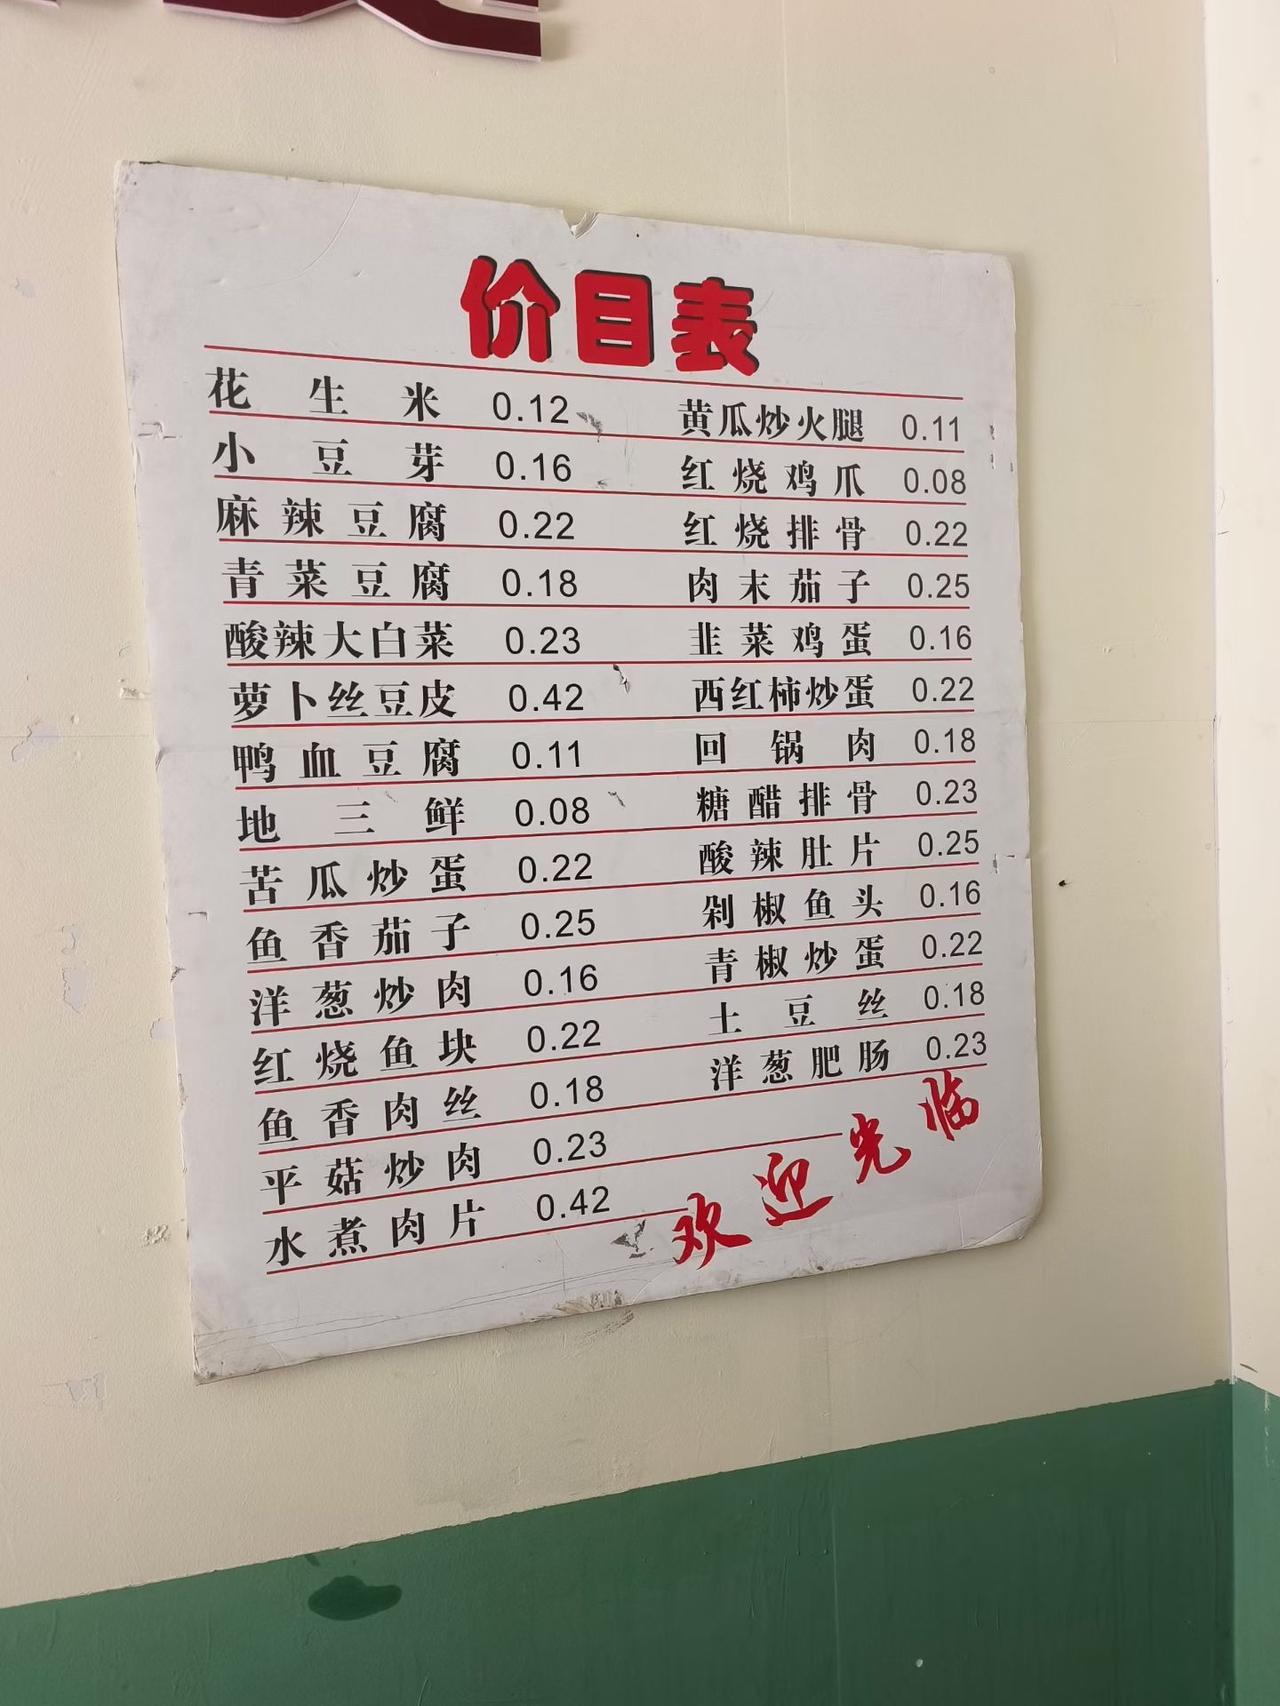 价目表
花生米 0.12
小豆芽 0.16
麻辣豆腐 0.22
青菜豆腐 0.18
酸辣大白菜 0.23
萝卜丝豆皮 0.42
鸭血豆腐 0.11
地三鲜 0.08
苦瓜炒蛋 0.22
鱼香茄子 0.25
洋葱炒肉 0.16
红烧鱼块 0.22
鱼香肉丝 0.18
平菇炒肉 0.23
水煮肉片 0.42
黄瓜炒火腿 0.11
红烧鸡爪 0.08
红烧排骨 0.22
肉末茄子 0.25
韭菜鸡蛋 0.16
西红柿炒蛋 0.22
回锅肉 0.18
糖醋排骨 0.23
酸辣肚片 0.25
剁椒鱼头 0.16
青椒炒蛋 0.22
土豆丝 0.18
洋葱肥肠 0.23
欢迎光临